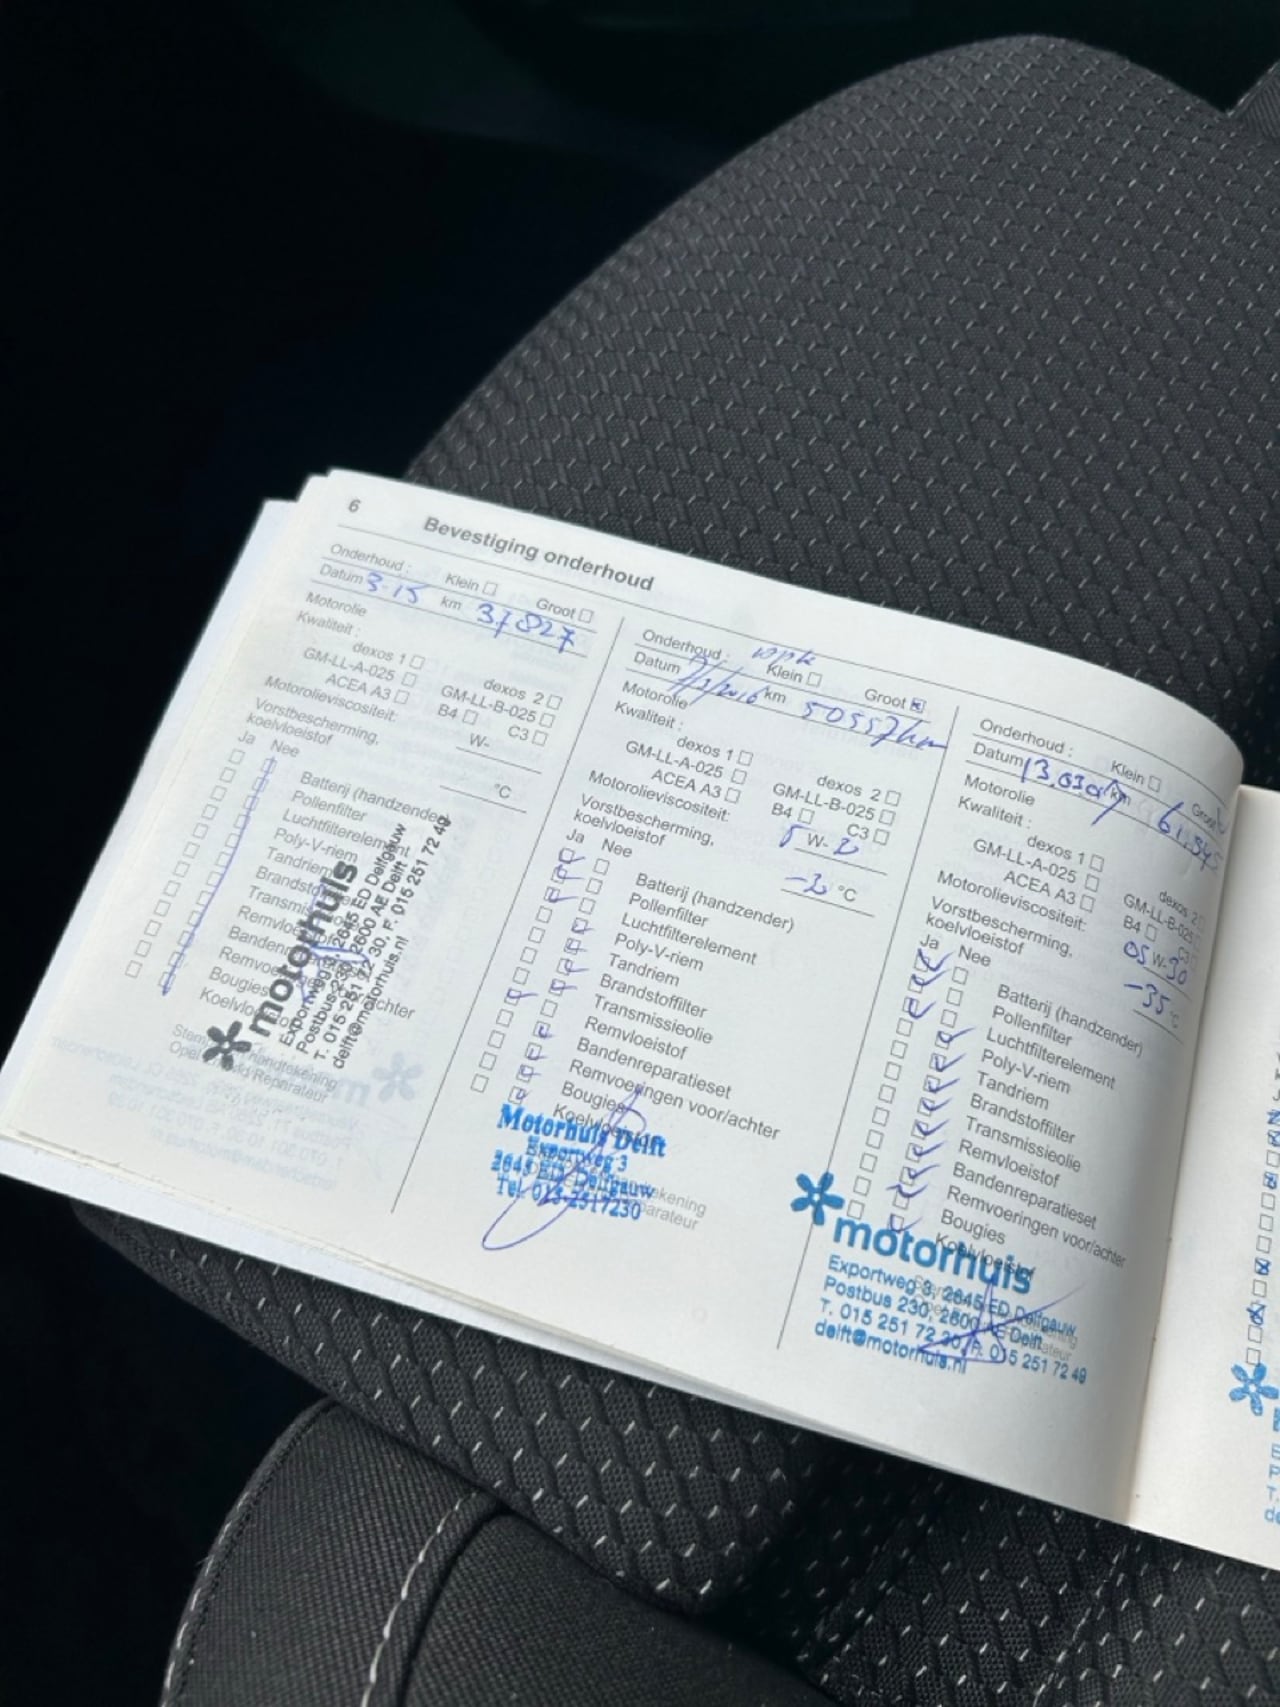 6
Bevestiging onderhoud
Onderhoud : Klein Groot
Datum 3-15 km 37827
Motorolie
Kwaliteit :
dexos 1 dexos 2
GM-LL-A-025 GM-LL-B-025
ACEA A3 B4 C3
Motorolieviscositeit: W-
Vorstbescherming,
koelvloeistof °C
Ja Nee
Batterij (handzender)
Pollenfilter
Luchtfilterelement
Poly-V-riem
Tandriem
Bougies
motorhuis
Exportweg 3, 2645 ED Delfgauw
Postbus 230, 2600 AE Delft
T. 015 251 72 30, F. 015 251 72 49
delft@motorhuis.nl
Onderhoud : Klein Groot
Datum km 50557km
Motorolie
Kwaliteit :
dexos 1 dexos 2
GM-LL-A-025 GM-LL-B-025
ACEA A3 B4 C3
Motorolieviscositeit: W-
Vorstbescherming,
koelvloeistof °C
Ja Nee
Batterij (handzender)
Pollenfilter
Luchtfilterelement
Poly-V-riem
Tandriem
Brandstoffilter
Transmissieolie
Remvloeistof
Bandenreparatieset
Remvoeringen voor/achter
Bougies
Koelvloeistof
Motorhuis Delft
Exportweg 3
2645 ED Delfgauw
Tel. 015-2517230
Onderhoud : Klein Groot
Datum km
Motorolie
Kwaliteit :
dexos 1 dexos 2
GM-LL-A-025 GM-LL-B-025
ACEA A3 B4 C3
Motorolieviscositeit: 05 W-30
Vorstbescherming,
koelvloeistof -35 °C
Ja Nee
Batterij (handzender)
Pollenfilter
Luchtfilterelement
Poly-V-riem
Tandriem
Brandstoffilter
Transmissieolie
Remvloeistof
Bandenreparatieset
Remvoeringen voor/achter
Bougies
Koelvloeistof
motorhuis
Exportweg 3, 2645 ED Delfgauw
Postbus 230, 2600 AE Delft
T. 015 251 72 30, F. 015 251 72 49
delft@motorhuis.nl